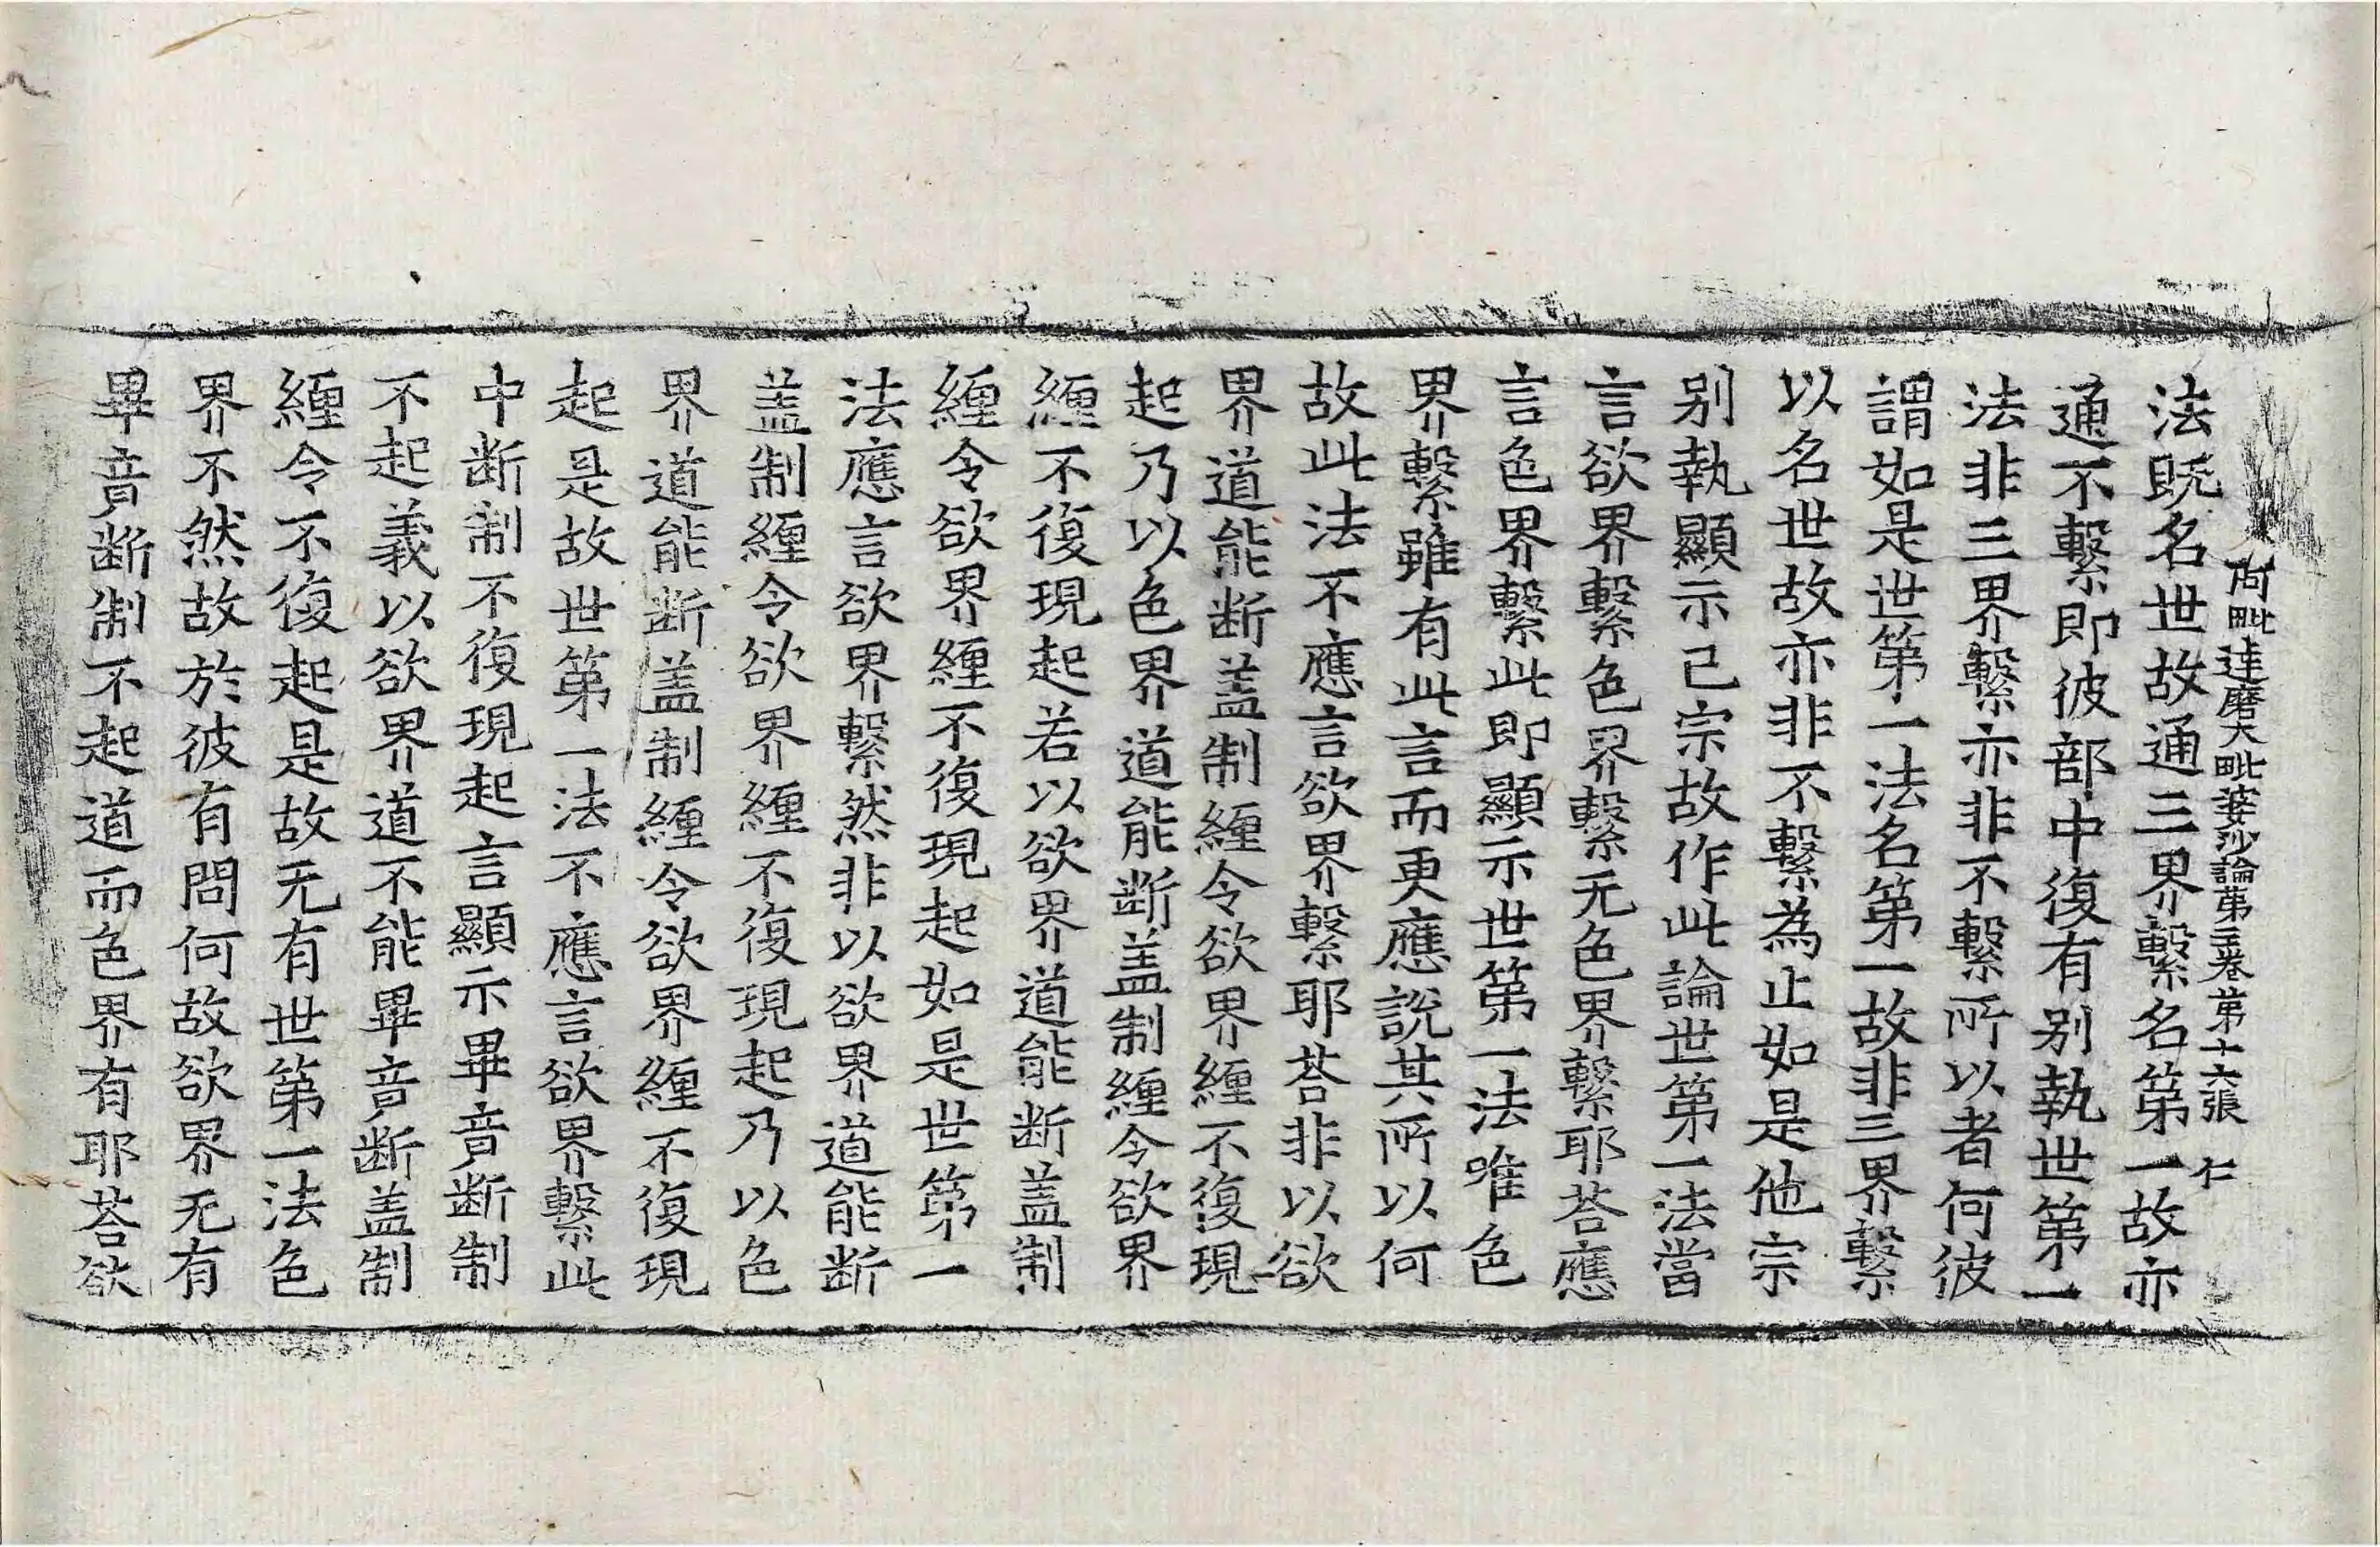 阿毗達磨大毗婆沙論第三卷第十六張 仁
法既名世故通三界繫名第一故亦
通不繫即彼部中復有别執世第一
法非三界繫亦非不繫所以者何彼
謂如是世第一法名第一故非三界繫
以名世故亦非不繫為止如是他宗
别執顯示己宗故作此論世第一法當
言欲界繫色界繫无色界繫耶荅應
言色界繫此即顯示世第一法唯色
界繫雖有此言而更應說其所以何
故此法不應言欲界繫耶荅非以欲
界道能断盖制纏令欲界纏不復現
起乃以色界道能断盖制纏令欲界
纏不復現起若以欲界道能断盖制
纏令欲界纏不復現起如是世第一
法應言欲界繫然非以欲界道能断
盖制纏令欲界纏不復現起乃以色
界道能断盖制纏令欲界纏不復現
起是故世第一法不應言欲界繫此
中断制不復現起言顯示畢竟断制
不起義以欲界道不能畢竟断盖制
纏令不復起是故无有世第一法色
界不然故於彼有問何故欲界无有
畢竟断制不起道而色界有耶荅欲